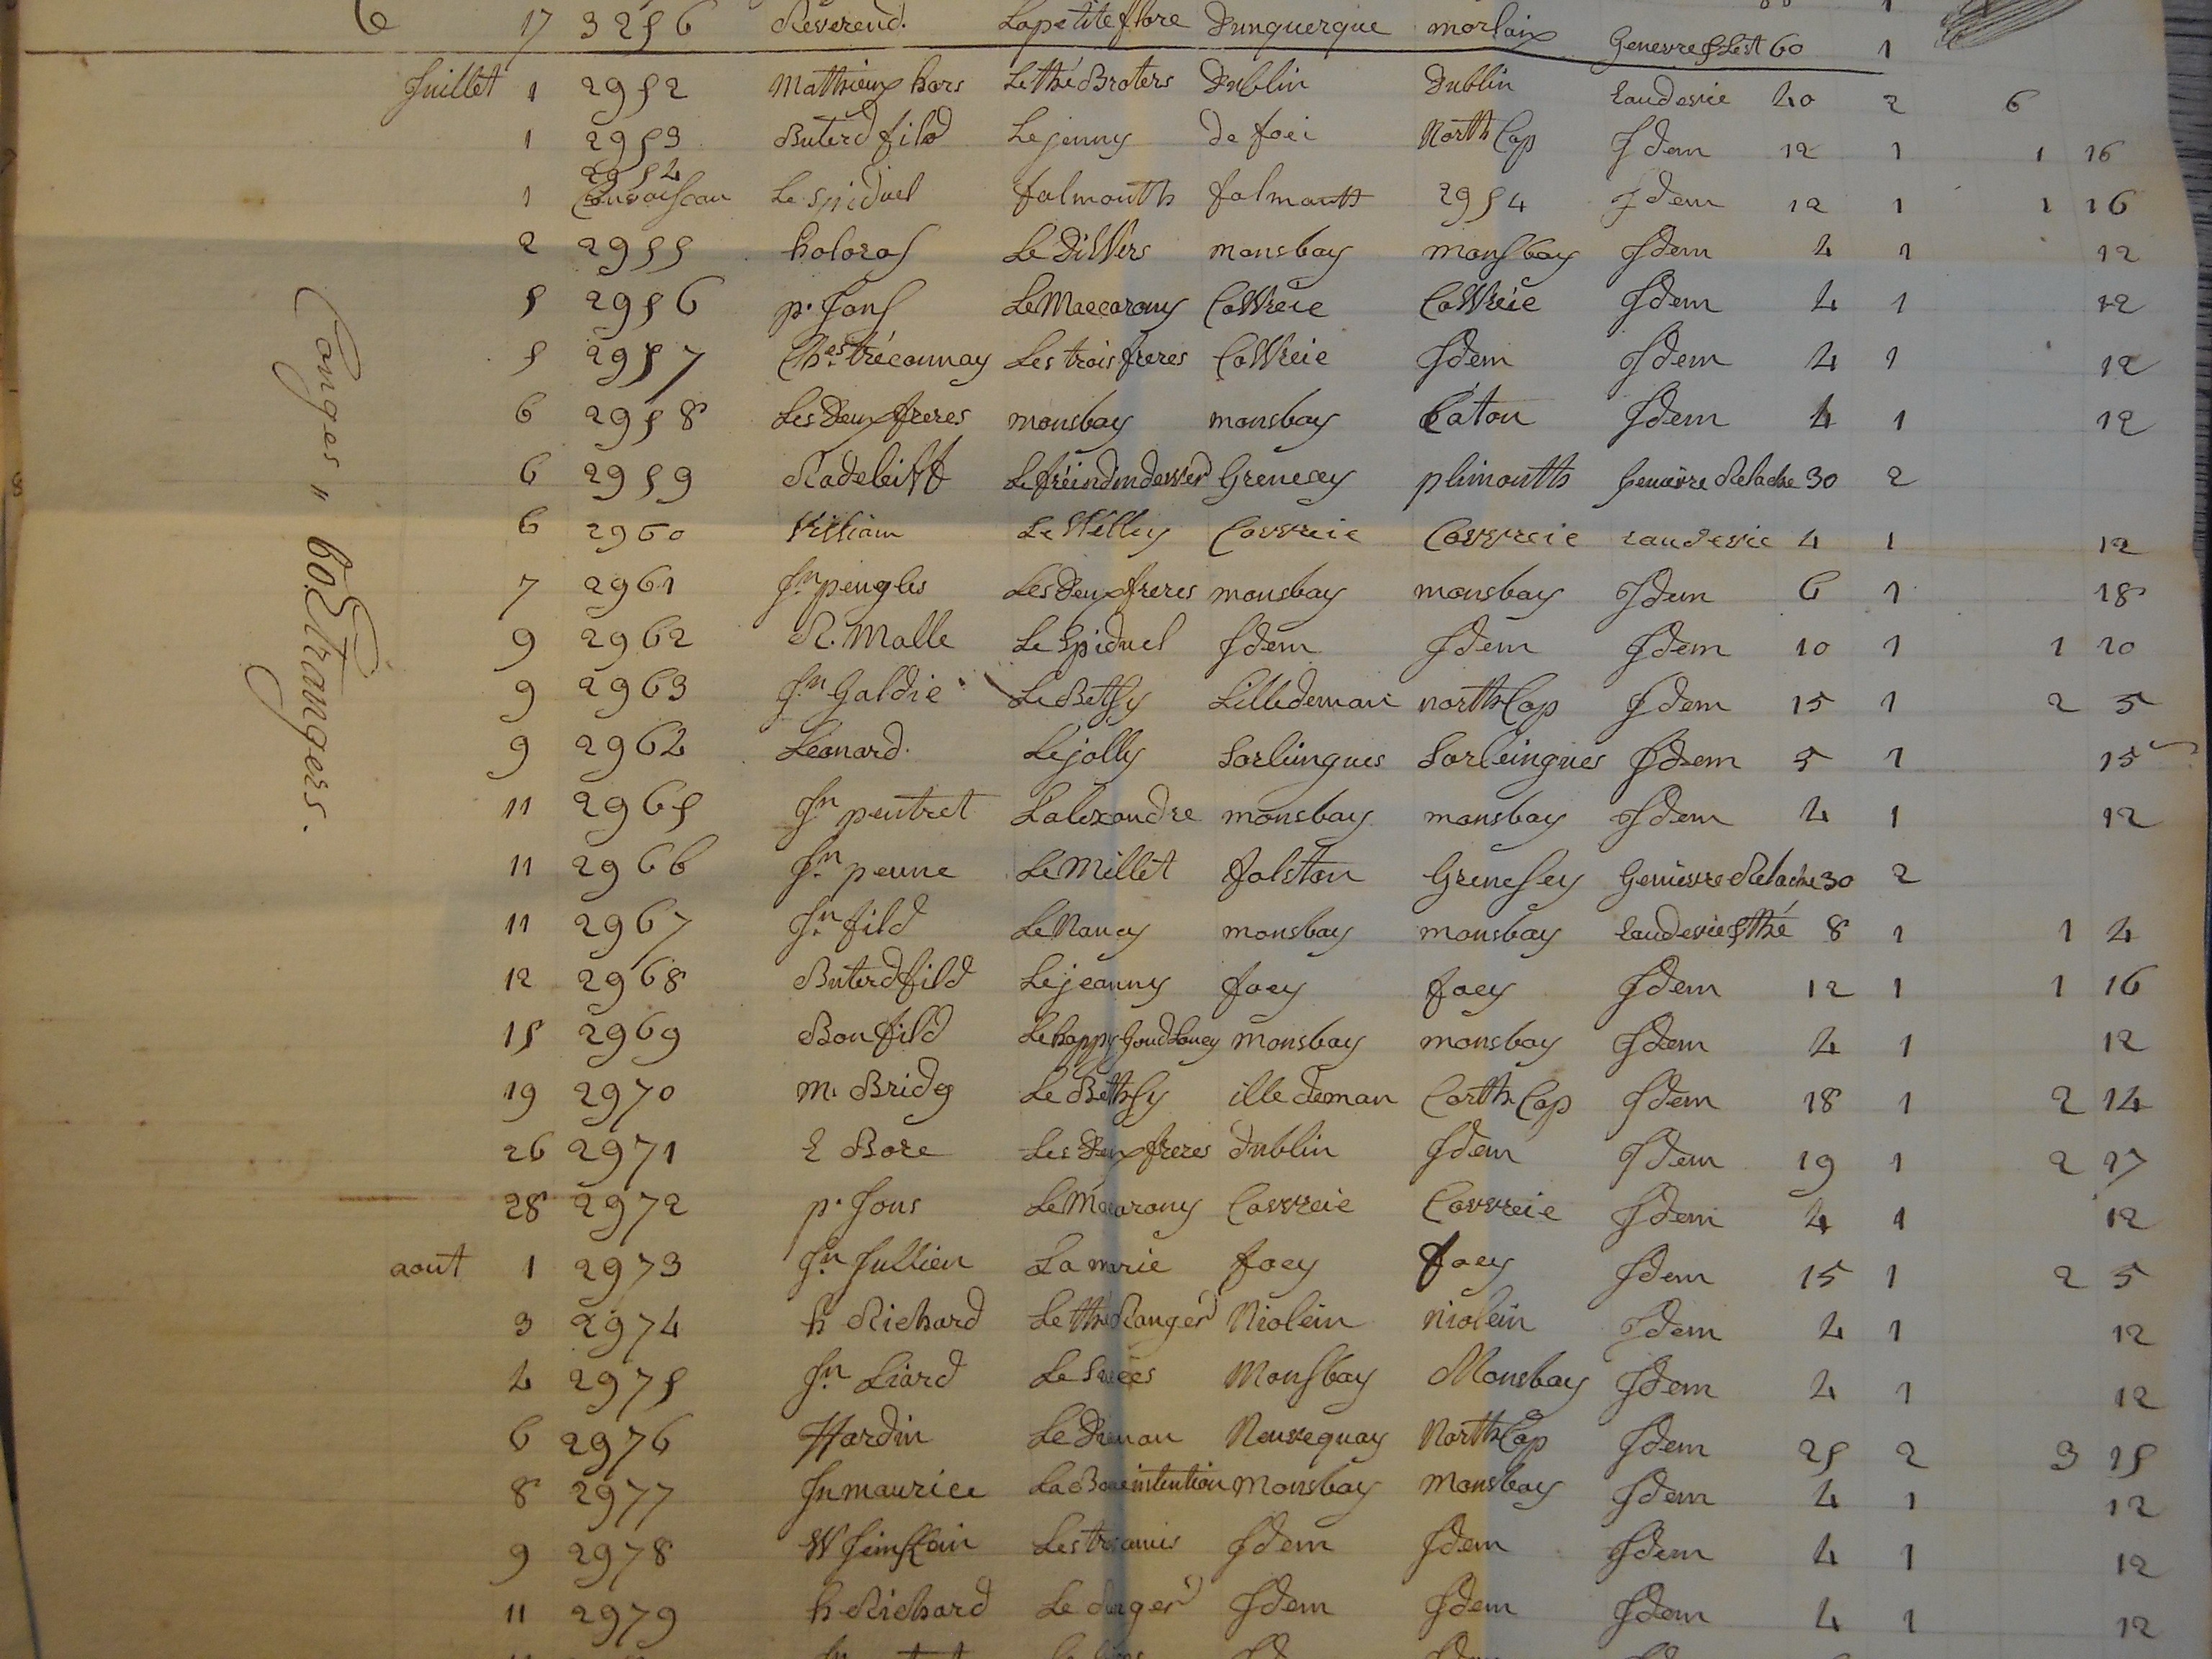 17 3256 Reverend. Lapetiteflore Dunquerque morlaix Genevre & Lest 60 1
Juillet 1 2952 Matthieux hors Le thé Broters Dublin Dublin Eaudevie 40 2 6
1 2953 Buterdfild Le jenny de foei North Cap Idem 12 1 1 16
2954
1 Le Spiduel falmouth falmoutt 2954 Idem 12 1 1 16
2 2955 holoras Le Dillvers monsbay monsbay Idem 4 1 12
5 2956 p. Jons Le Maccarony CaWreie CaWréie Idem 4 1 12
5 2957 Ches. trécannay Les trois freres CaWreie Idem Idem 4 1 12
6 2958 Les Deux freres monsbay monsbay Caton Idem 4 1 12
6 2959 Radeleiff Grenesey plimoutth Genievre Relache 30 2
6 2960 William Le Willey Cavvreie Cavvreie eaudevie 4 1 12
7 2961 Jn. pengles Les Deux freres monsbay monsbay Idem 6 1 18
9 2962 R. Malle Le Spiduel Idem Idem Idem 10 1 1 10
9 2963 Jn. Galdie Le Bethsy Lilledeman north Cap Idem 15 1 2 5
9 2964 Léonard. Le jolly Sorlingues Sorleingues Idem 5 1 15
11 2965 Jn. pentret L'alexandre monsbay monsbay Idem 4 1 12
11 2966 Jn. penne Le Millet falston Grenesey Genievre Relache 30 2
11 2967 Jn. fild Le Nancy monsbay monsbay Eaudevie & thé 8 1 1 4
12 2968 Buterdfild Le jeanny foey foey Idem 12 1 1 16
15 2969 Bonfild Le happy Goud Loucy monsbay monsbay Idem 4 1 12
19 2970 m. Bridg Le Bethsy ille deman Corth Cap Idem 18 1 2 14
26 2971 E Bore Les Deux freres dublin Idem Idem 19 1 2 17
28 2972 p. Jons Le Macarony Cavvreie Cavvreie Idem 4 1 12
aout 1 2973 Jn. Jullien La marie foey foey Idem 15 1 2 5
3 2974 h Richard Le thé Ranger Niolein Niolein Idem 4 1 12
4 2975 Jn. Liard Le Succes Monsbay Monsbay Idem 4 1 12
6 2976 Hardin Neuvequay North Cap Idem 25 2 3 15
8 2977 Jn maurice La Boneintention Monsbay Monsbay Idem 4 1 12
9 2978 W Les trois amis Idem Idem Idem 4 1 12
11 2979 h Richard Idem Idem Idem 4 1 12
Conges " 60. Etrangers.